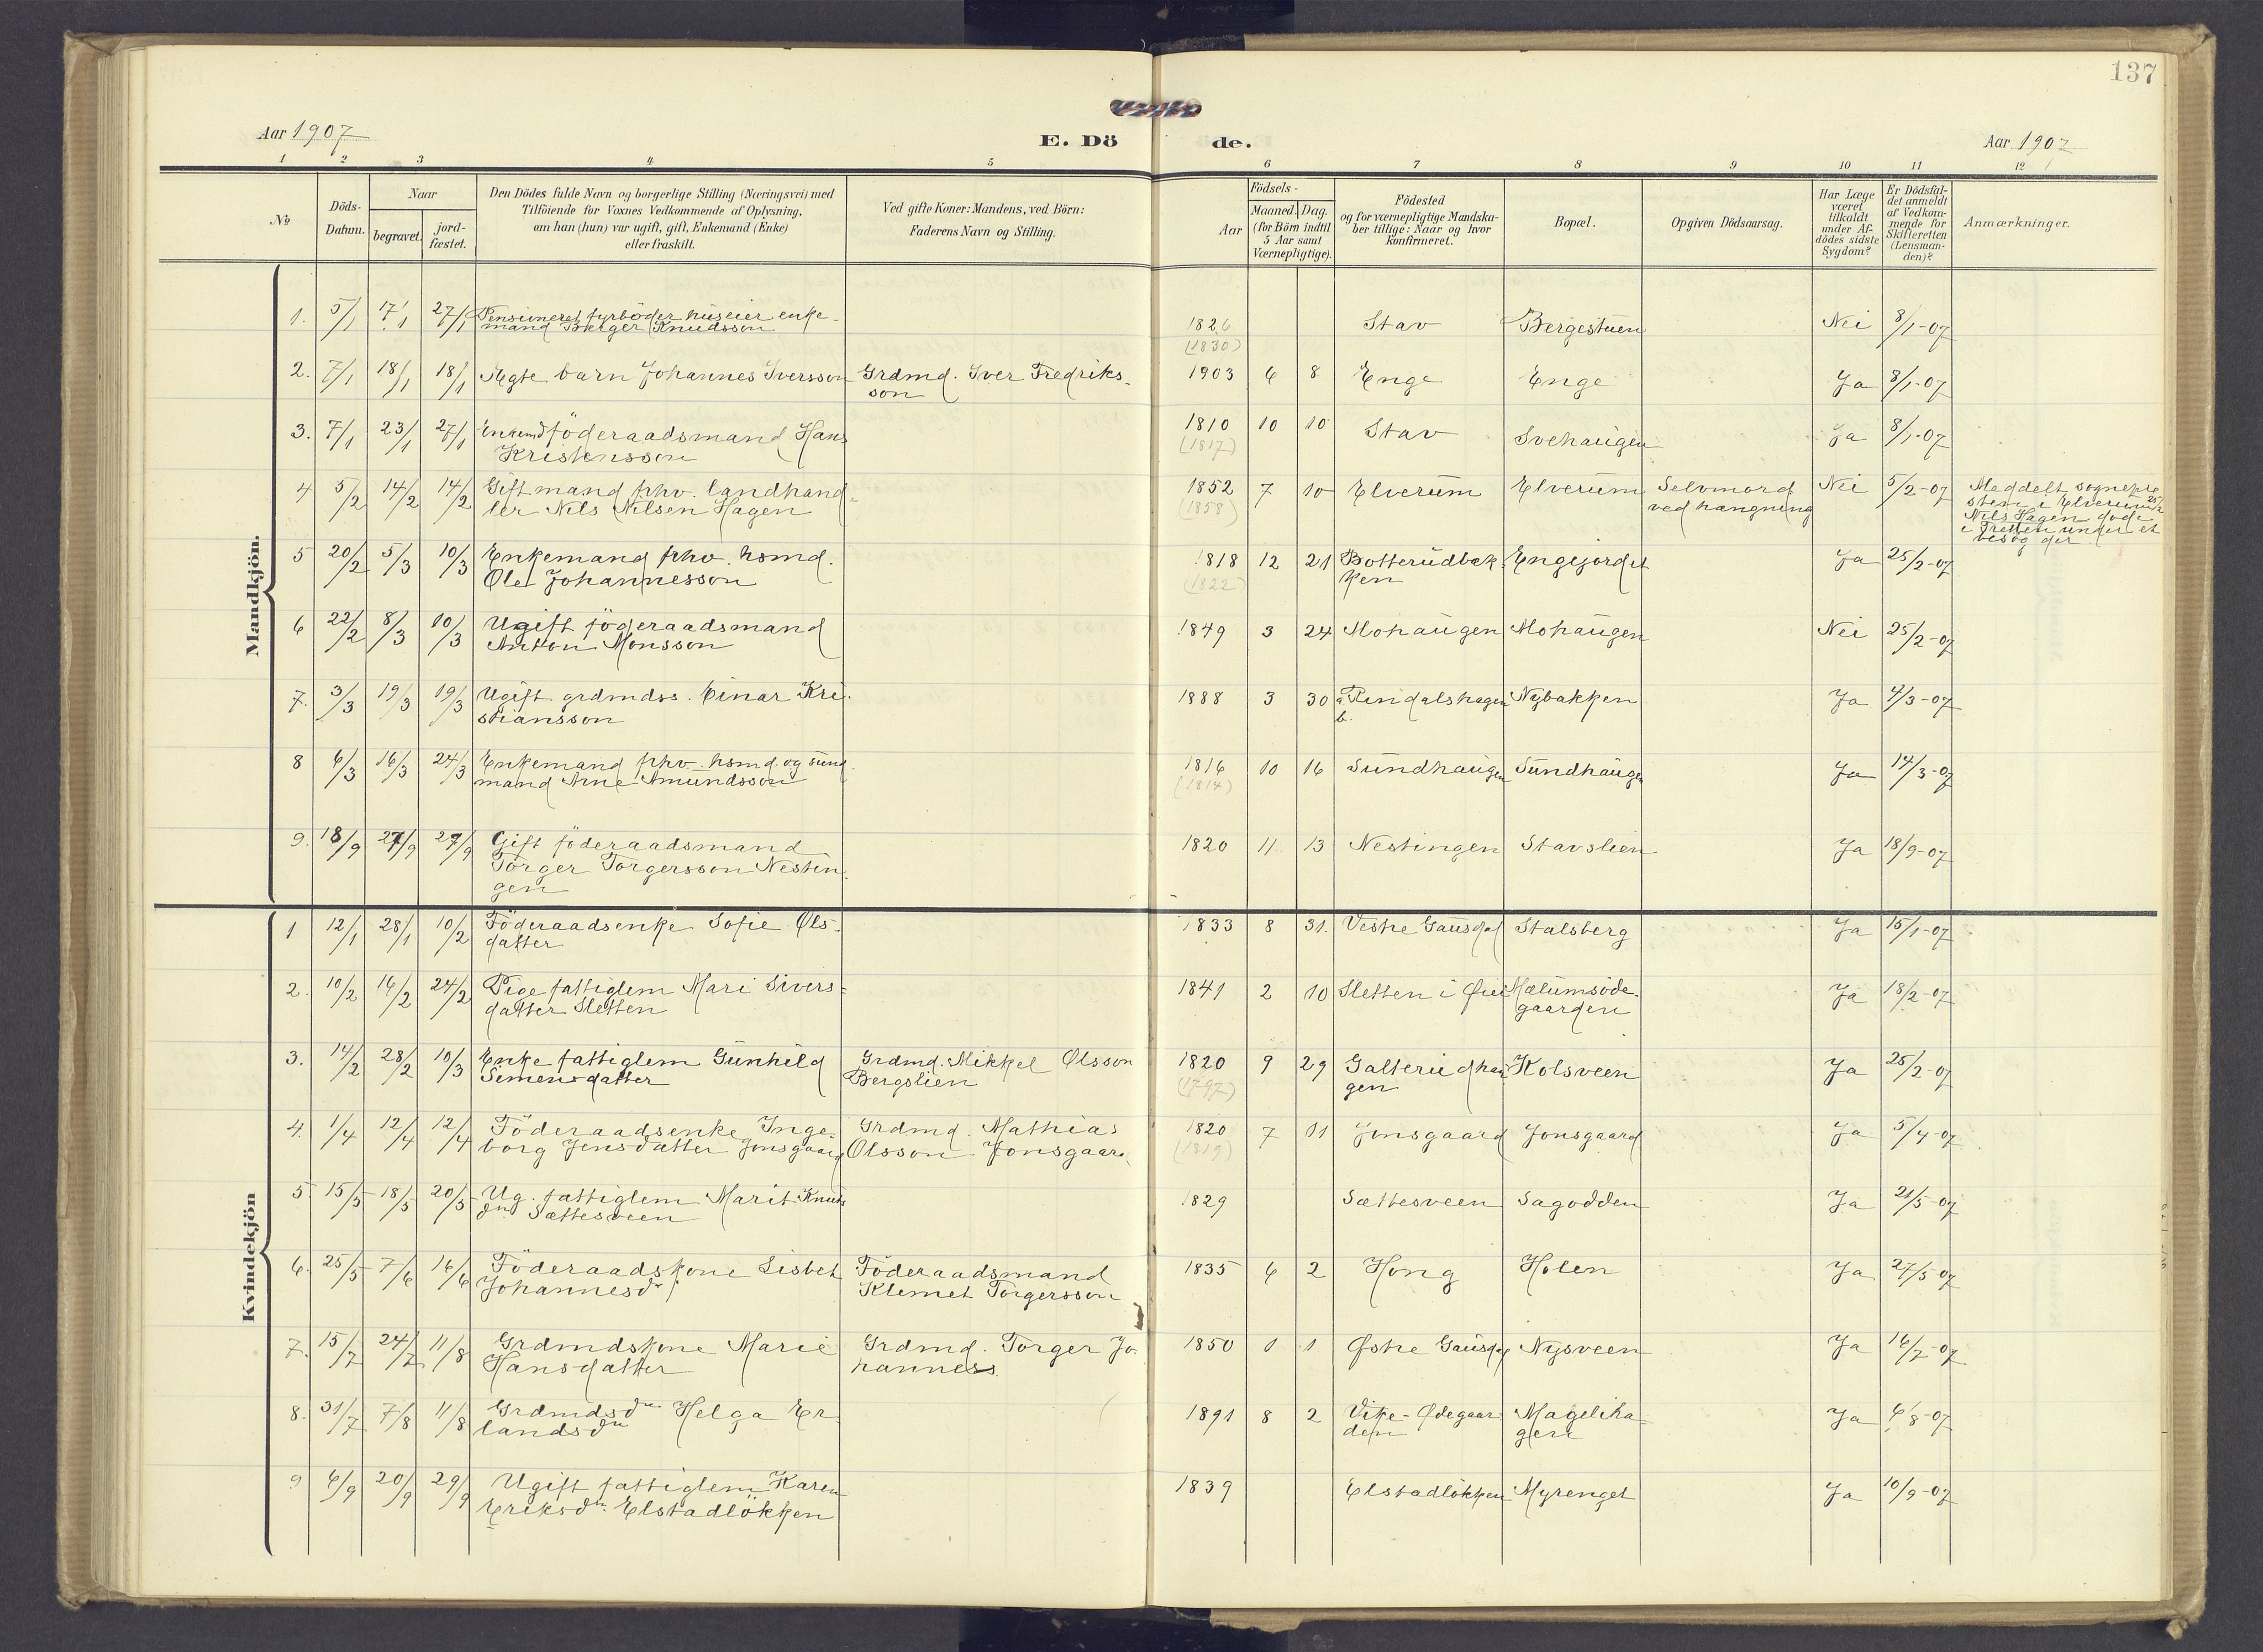 137
Aar 1907
E. Dö de.
Aar 1907
1 2 3 4 5 6 7 8 9 10 11 12
No
Döds-Datum.
Naar
begravet.
jord-fæstet.
Den Dödes fulde Navn og borgerlige Stilling (Næringsvei) med
Tilföiende for Voxnes Vedkommende af Oplysning,
om han (hun) var ugift, gift, Enkemand (Enke)
eller fraskilt.
Ved gifte Koner: Mandens, ved Börn:
Faderens Navn og Stilling.
Födsels-
Aar
Maaned. Dag.
(for Börn indtil
5 Aar samt
Værnepligtige).
Födested
og for værnepligtige Mandska-
ber tillige: Naar og hvor
konfirmeret.
Bopæl.
Opgiven Dödsaarsag.
Har Læge
været
tilkaldt
under Af-
dödes sidste
Sygdom?
Er Dödsfal-
det anmeldt
af Vedkom-
mende for
Skifteretten
(Lensman-
den)?
Anmærkninger.
Mandkjön.
1. 5/1 17/1 27/1 Pensioneret fyrböder huseier enke- 1826 Stav Bergestuen Nei 8/1-07
mand Berger Knudsson
(1830)
2. 7/1 18/1 18/1 Ægte barn Johannes Iversson Grdmd. Iver Fredriks- 1903 6 8 Enge Enge Ja 8/1-07
son
3. 7/1 23/1 27/1 Enkemd föderaadsmand Hans 1810 10 10 Stav Svehaugen Ja 8/1-07
Kristensson (1817)
4 5/2 14/2 14/2 Gift mand fhv. landhand- 1852 7 10 Elverum Elverum Selvmord Nei 5/2-07 Meddelt sognepre
ler Nils Nilsen Hagen (1858) ved hængning sten i Elverum 25/2
Nils Hagen døde
i Tretten under et
besøg der
5 20/2 5/3 10/3 Enkemand fhv. hsmd. 1818 12 21 Botterudbak- Engejordet Ja 25/2-07
Ole Johannesson (1822) ken
6 22/2 8/3 10/3 Ugift föderaadsmand 1849 3 24 Mohaugen Mohaugen Nei 25/2-07
Anton Monsson
7. 3/3 19/3 19/3 Ugift grdmdss. Einar Kri- 1888 3 30 a Rindalshagen Nybakken Ja 4/3-07
stiansson b.
8 6/3 16/3 24/3 Enkemand fhv. hsmd. og sund 1816 10 16 Sundhaugen Sundhaugen Ja 14/3-07
mand Arne Amundsson (1814)
9. 18/9 27/9 27/9 Gift föderaadsmand 1820 11 13 Nestingen Stavslien Ja 18/9-07
Torger Torgersson Nestin-
gen
Kvindekjön
1 12/1 28/1 10/2 Föderaadsenke Sofie Ols- 1833 8 31. Vestre Gausdal Stalsberg Ja 15/1-07
datter
2. 10/2 16/2 24/2 Pige fattiglem Mari Sivers- 1841 2 10 Sletten i Øier Mælumsöde-
datter Sletten gaarden Ja 18/2-07
3. 14/2 28/2 10/3 Enke fattiglem Gunhild Grdmd. Mikkel Olsson 1820 9 29 Galterudhau Kolsveen Ja 25/2-07
Simensdatter Bergslien (1797) gen
4. 1/4 12/4 12/4 Föderaadsenke Inge- Grdmd. Mathias 1820 7 11 Jonsgaard Jonsgaard Ja 5/4-07
borg Jensdatter Jonsgaard Olsson Jonsgaard (1819)
5 15/5 18/5 20/5 Ug. fattiglem Marit Knuds 1829 Sættesveen Sagodden Ja 21/5-07
dtr Sættesveen
6. 25/5 7/6 16/6 Föderaadskone Lisbet Föderaadsmand 1835 6 2 Hong Holen Ja 27/5-07
Johannesdr Klemet Torgersson
7. 15/7 24/7 11/8 Grdmdskone Marie Grdmd. Torger Jo- 1850 1 1 Østre Gausdal Nysveen Ja 16/7-07
Hansdatter hanness.
8. 31/7 7/8 11/8 Grdmdsdtr Helga Er- 1891 8 2 Vike-Ødegaar Mageliha-
landsdtr den gen Ja 6/8-07
9 6/9 20/9 29/9 Ugift fattiglem Karen 1839 Elstadlökken Myrenget Ja 10/9-07
Eriksdtr Elstadlökken